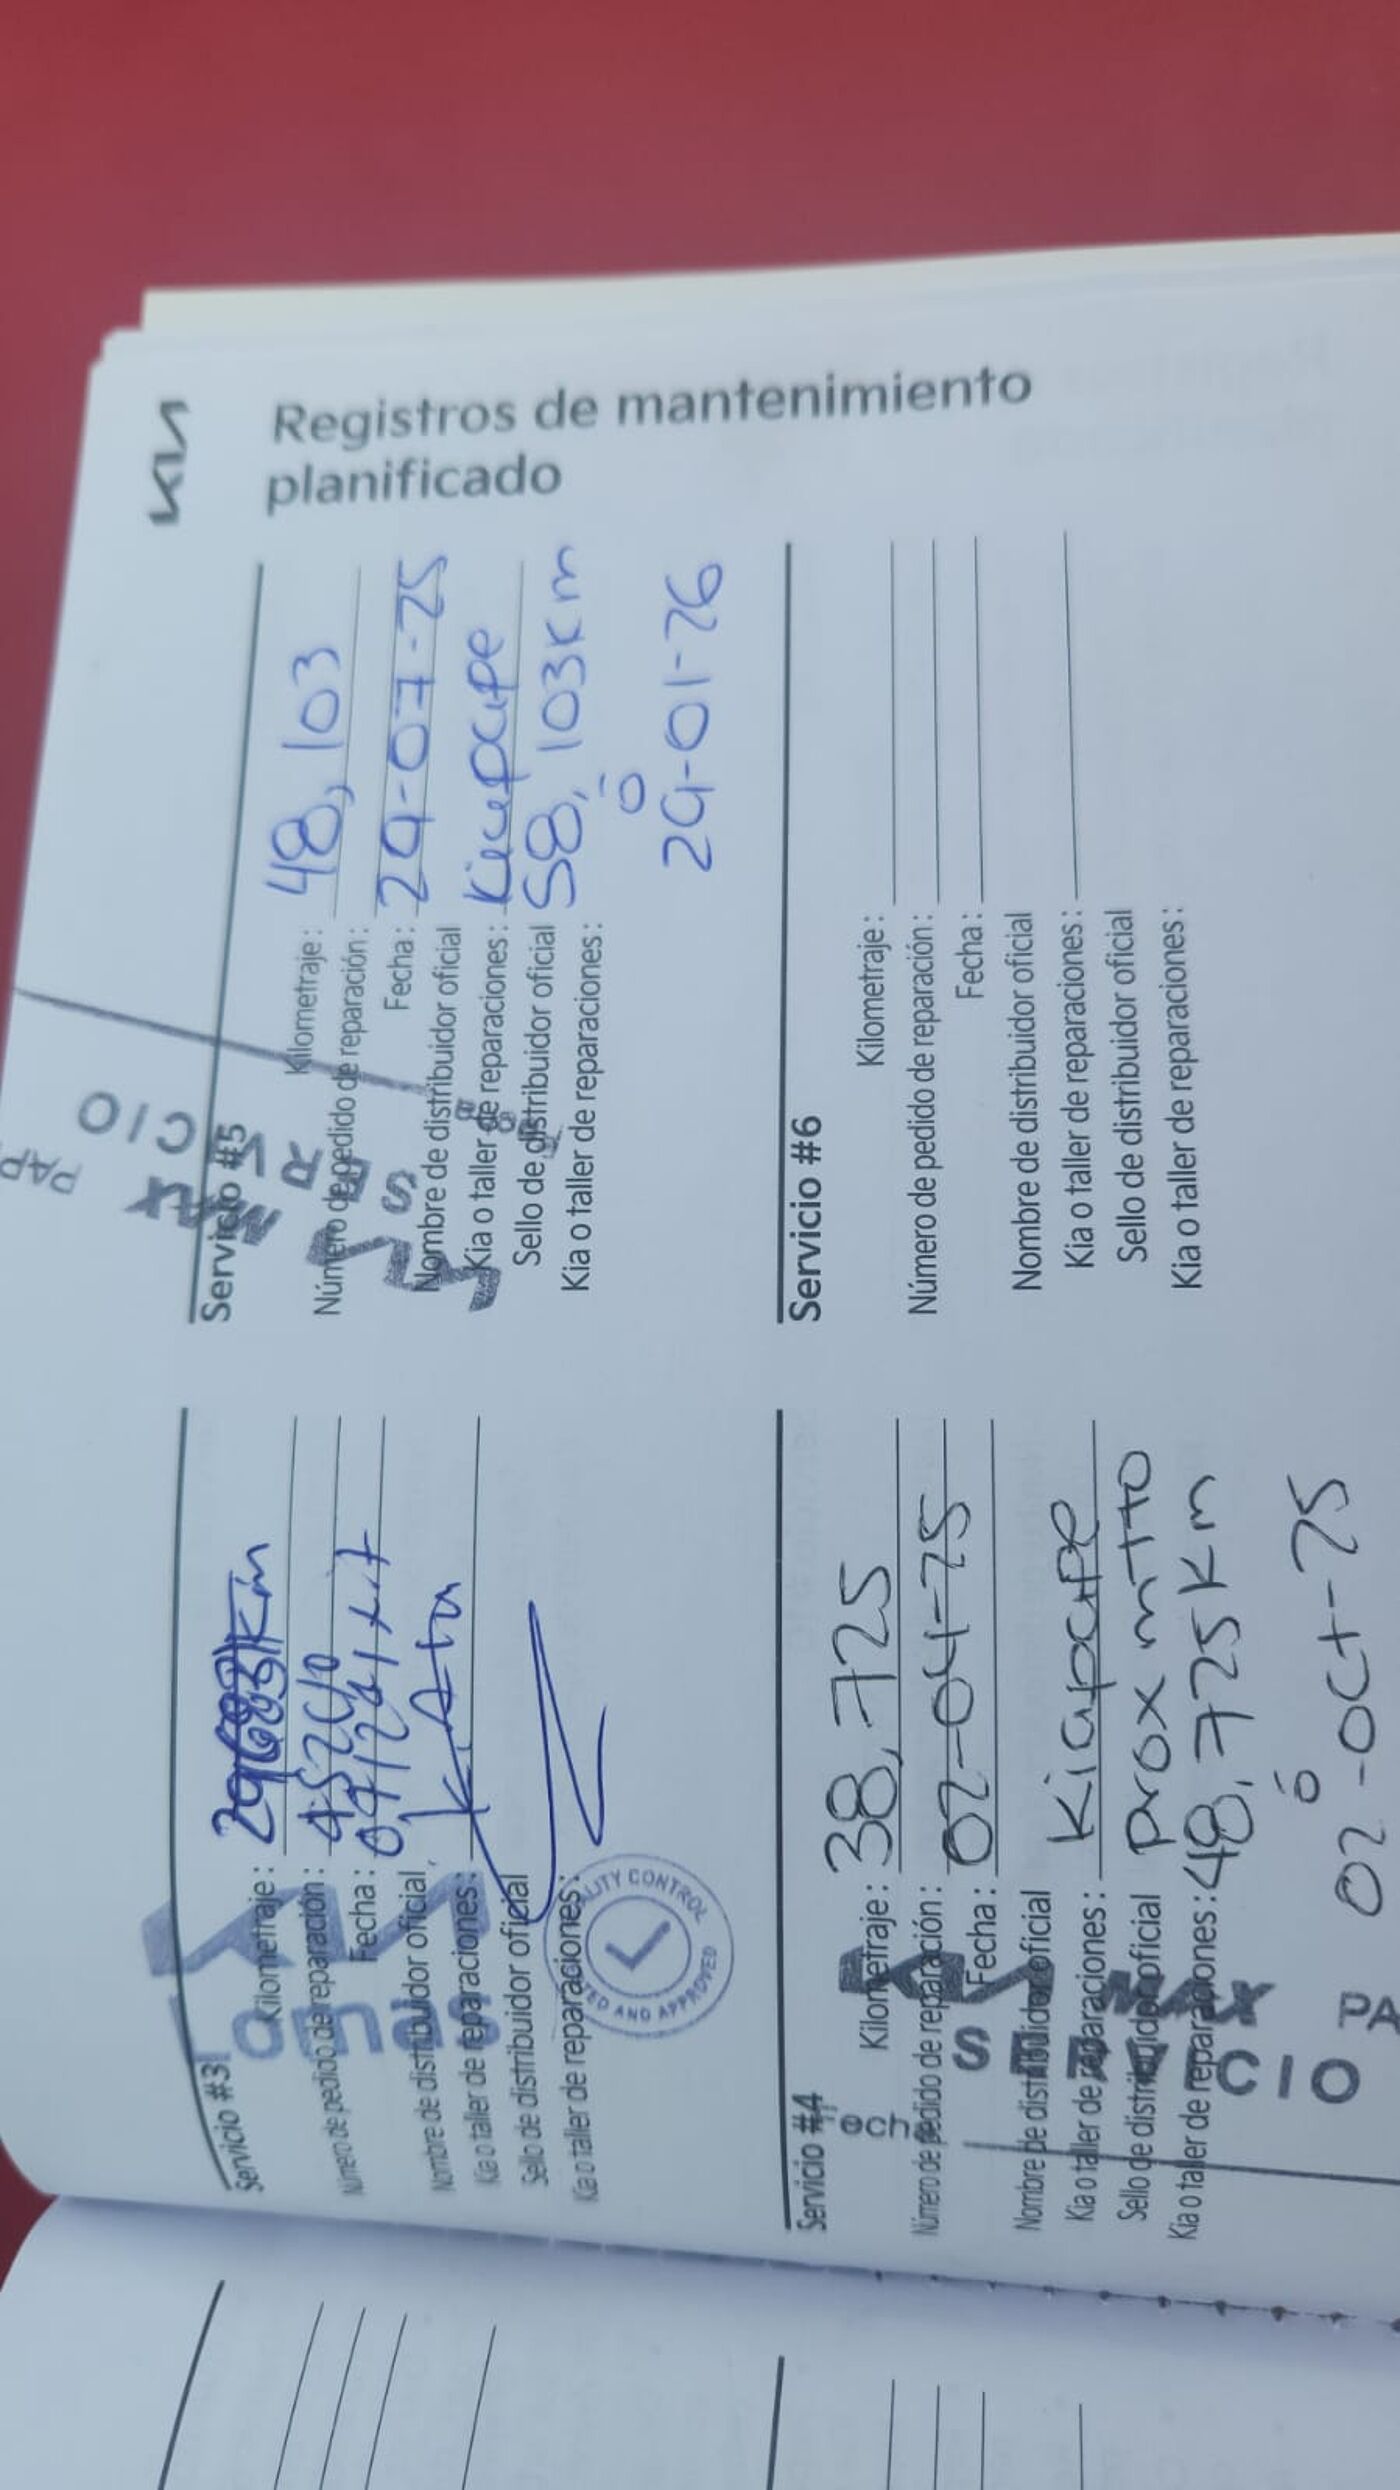 KIA
Registros de mantenimiento
planificado
Servicio #3
Kilometraje:
Número de pedido de reparación: 45210
Fecha:
Nombre de distribuidor oficial
Kia o taller de reparaciones:
Sello de distribuidor oficial
Kia o taller de reparaciones:
KIA
lomas
QUALITY CONTROL
TESTED AND APPROVED
Servicio #4
Kilometraje: 38,725
Número de pedido de reparación:
Fecha: 02-04-25
Nombre de distribuidor oficial
Kia o taller de reparaciones: Kiapape
Sello de distribuidor oficial prox mtto
Kia o taller de reparaciones: 48,725 Km
ó
02-Oct-25
KIA MAX
SERVICIO
PA
Servicio #5
Kilometraje: 48,103
Número de pedido de reparación:
Fecha: 29-07-25
Nombre de distribuidor oficial
Kia o taller de reparaciones: Kiapape
Sello de distribuidor oficial 58,103 Km
Kia o taller de reparaciones:
ó
29-01-26
KIA MAX
SERVICIO
PAP
Servicio #6
Kilometraje:
Número de pedido de reparación:
Fecha:
Nombre de distribuidor oficial
Kia o taller de reparaciones:
Sello de distribuidor oficial
Kia o taller de reparaciones: